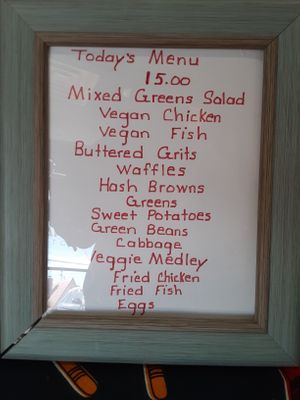 Today's Menu
15.00
Mixed Greens Salad
Vegan Chicken
Vegan Fish
Buttered Grits
Waffles
Hash Browns
Greens
Sweet Potatoes
Green Beans
Cabbage
Veggie Medley
Fried Chicken
Fried Fish
Eggs